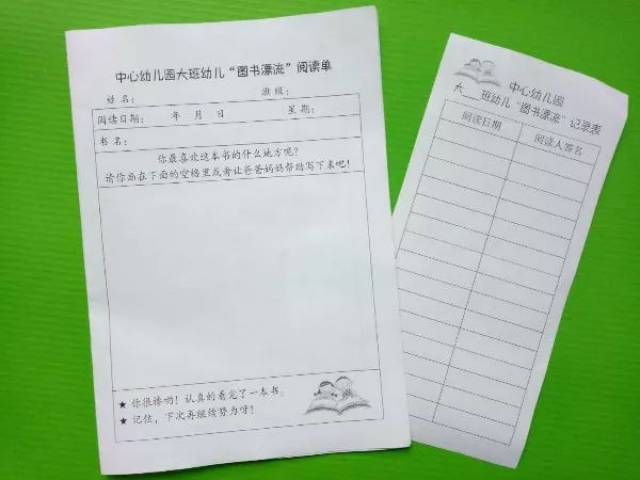 中心幼儿园大班幼儿“图书漂流”阅读单
姓名： 班级：
阅读日期： 年 月 日 星期：
书名：
你最喜欢这本书的什么地方呢？
请你画在下面的空格里或者让爸爸妈妈帮助写下来吧！
★ 你很棒哟！认真的看完了一本书。
★ 记住，下次再继续努力呀！
中心幼儿园
大__班幼儿“图书漂流”记录表
阅读日期 阅读人签名